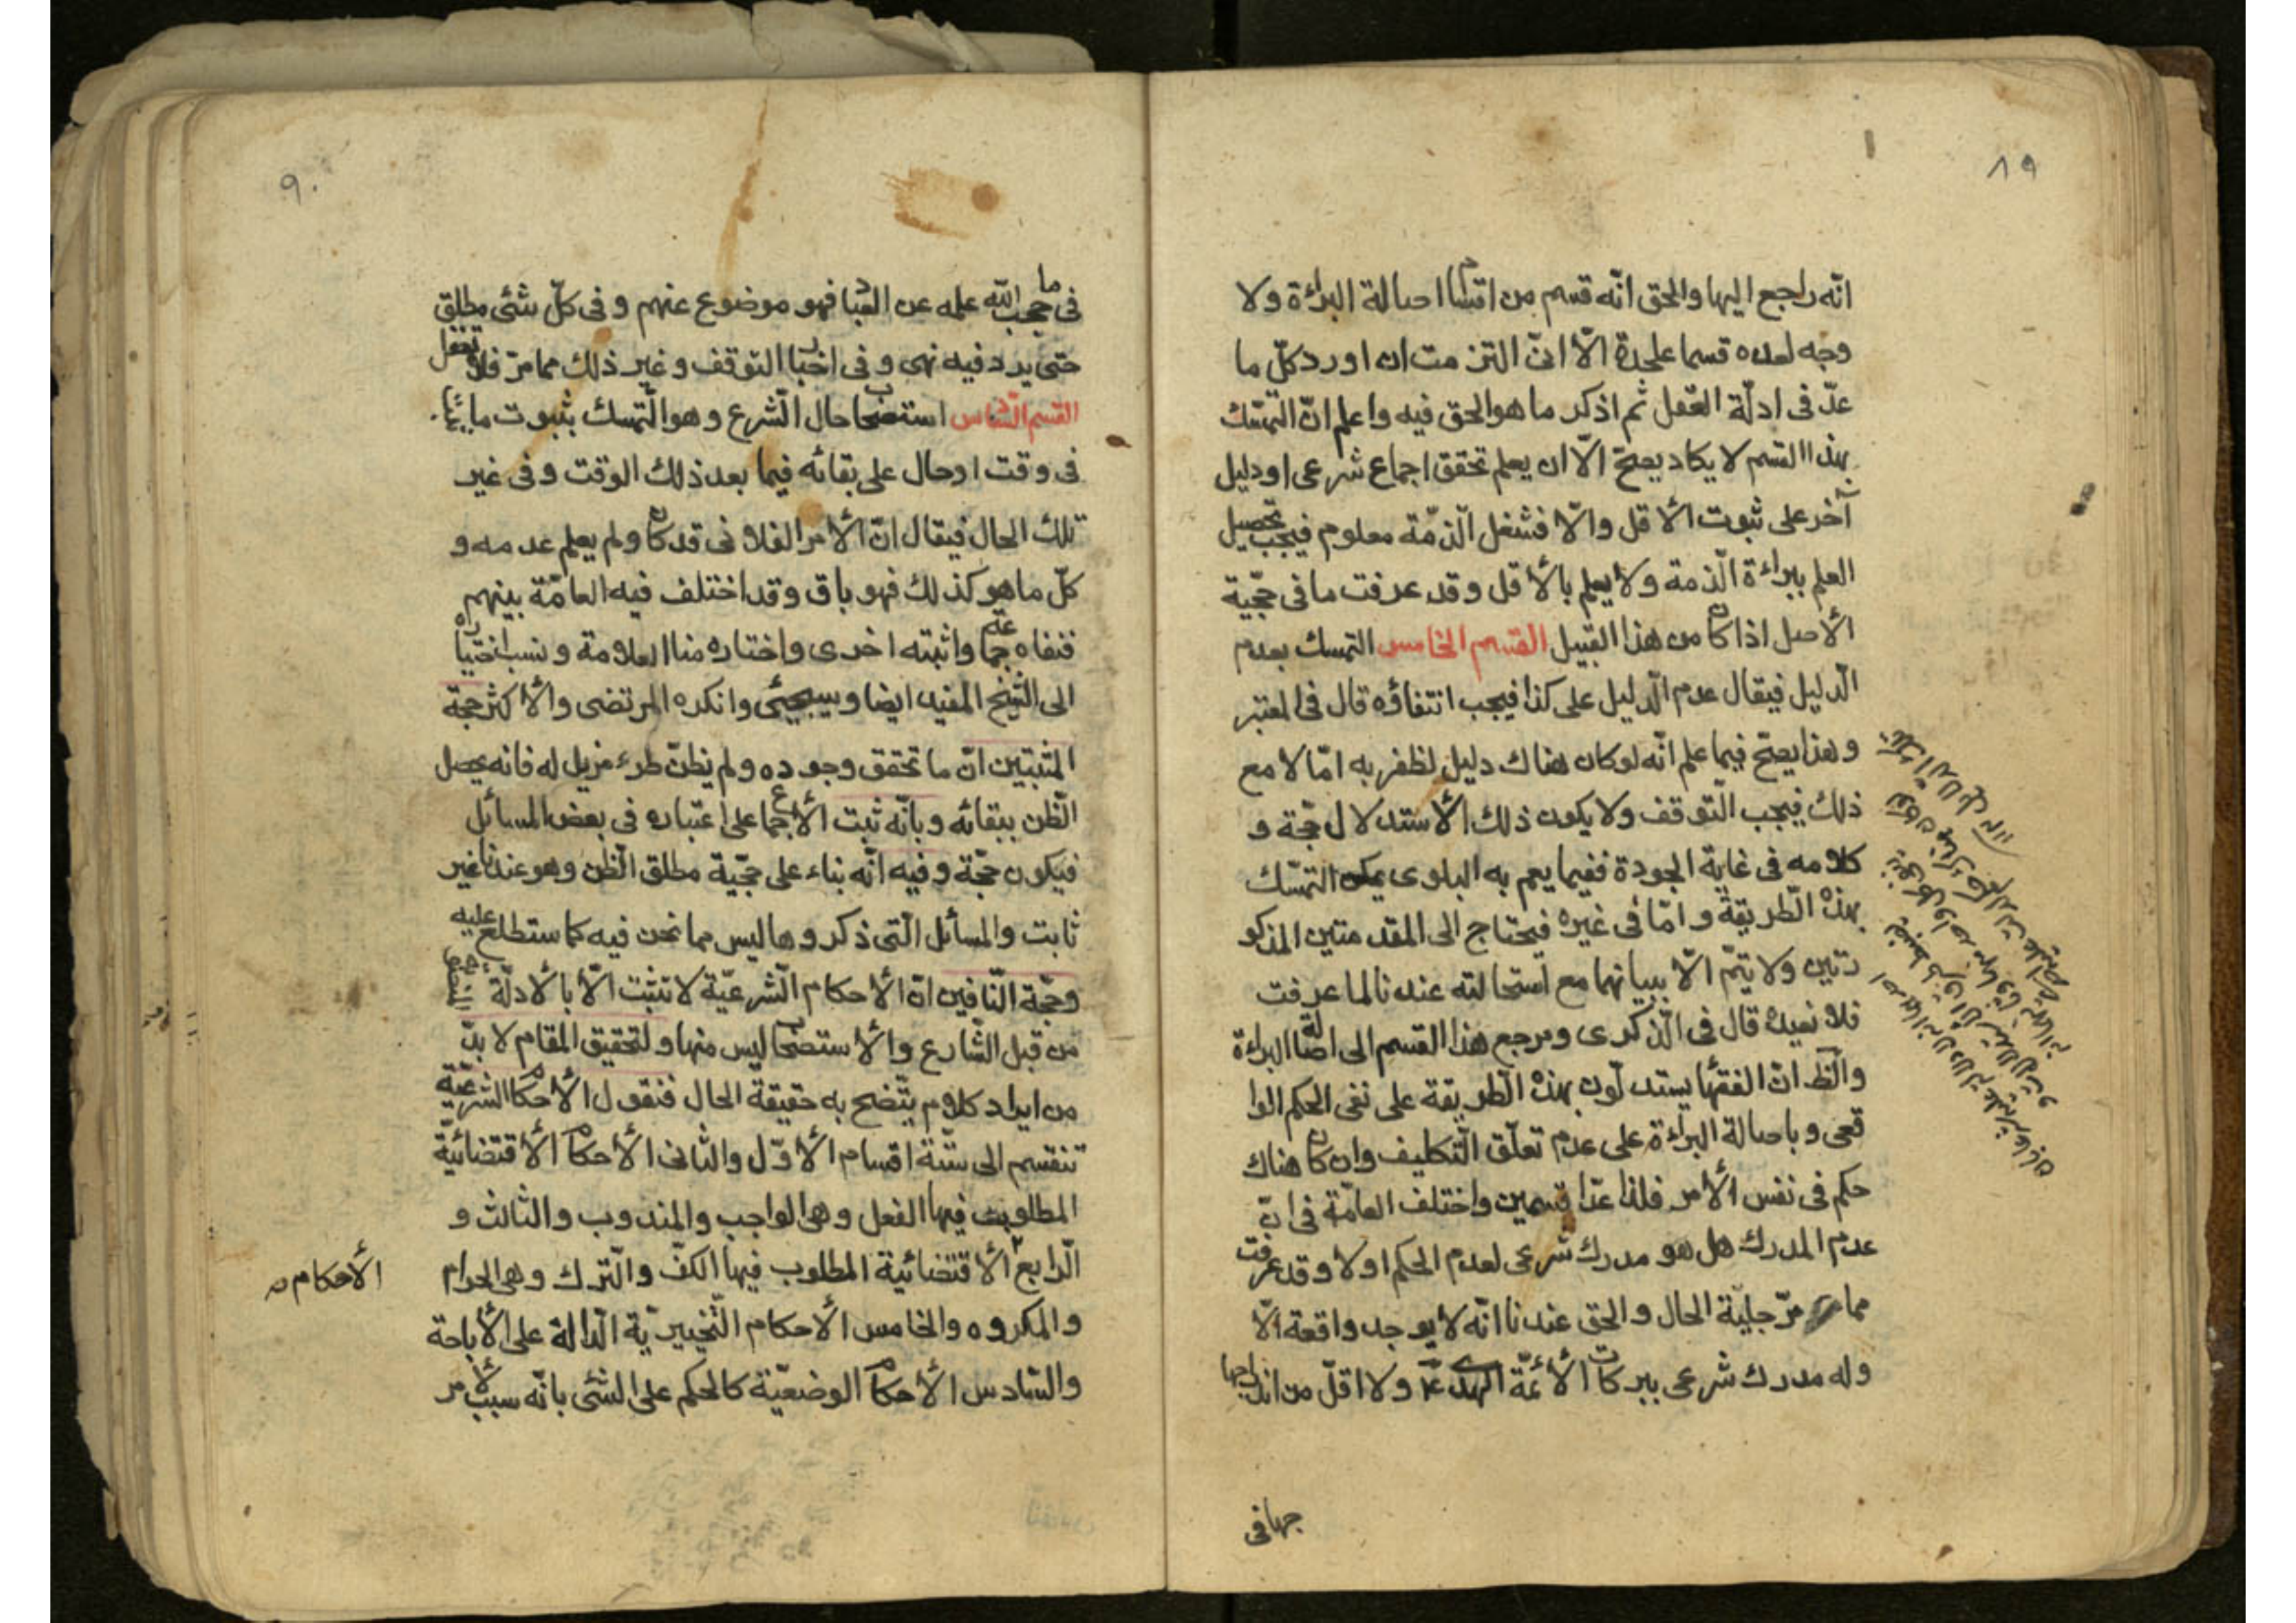 ٨٩
انّه راجع اليها والحق انّه قسم من اقسام اصالة البراءة ولا
وجه لعده قسما علىحدة الّا انّى التزمت ان اورد كلّ ما
عدّ فى ادلّة العقل ثم اذكر ما هو الحق فيه واعلم انّ التمسّك
بهذا القسم لا يكاد يصحّ الّا ان يعلم تحقق اجماع شرعى او دليل
آخر على ثبوت الأقل والّا فشغل الّذمّة معلوم فيجب تحصيل
العلم ببراءة الّذمة ولا يعلم بالأقل وقد عرفت ما فى حجّية
الأصل اذا كان من هذا القبيل القسم الخامس التمسك بعدم
الّدليل فيقال عدم الّدليل على كذا فيجب انتفاؤه قال فى المعتبر
وهذا يصحّ فيما علم انّه لو كان هناك دليل لظفر به امّا لا مع
ذلك فيجب الّتوقف ولا يكون ذلك الأستدلال حجّة و
كلامه فى غاية الجودة ففيما يعم به البلوى يمكن التمسّك
بهذه الّطريقة وامّا فى غيره فيحتاج الى المقدمتين المذكو
رتين ولا يتمّ الّا ببيانهما مع استحالته عندنا لما عرفت
فلا نعيده قال فى الّذكرى ومرجع هذا القسم الى اصالة البراءة
والّظ انّ الفقهاء يستدلّون بهذه الّطريقة على نفى الحكم الوا
قعى وباصالة البراءة على عدم تعلّق الّتكليف وان كان هناك
حكم فى نفس الأمر فلذا عدّا قسمين واختلف العامّة فى انّ
عدم المدرك هل هو مدرك شرعى لعدم الحكم اولا وقد عرفت
مما مرّ جليّة الحال والحق عندنا انّه لا يوجد واقعة الّا
وله مدرك شرعى ببركات الأئمّة الهدى ع ولا اقلّ من اندراجها
جها فى
٩٠
فى ما حجب الّله علمه عن العباد فهو موضوع عنهم وفى كلّ شئى مطلق
حتى يرد فيه نهى وفى اخبار التوقف وغير ذلك مما مرّ فلا تغفل
القسم الّسادس استصحاب حال الّشرع وهو الّتمسك بثبوت ما ثبت
فى وقت اوحال على بقائه فيما بعد ذلك الوقت وفى غير
تلك الحال فيقال انّ الأمر الفلانى قد كان ولم يعلم عدمه و
كلّ ما هو كذلك فهو باق وقد اختلف فيه العامّة بينهم
فنفاه جماعة واثبته اخرى واختاره منا العلامة ونسب اختياره
الى الشّيخ المفيد ايضا وسيجيئى وانكره المرتضى والأكثر حجة
المثبتين انّ ما تحقق وجوده ولم يظنّ طرء مزيل له فانه يحصل
الّظن ببقائه وبانّه ثبت الأجماع على اعتباره فى بعض المسائل
فيكون حجّة وفيه انّه بناء على حجّية مطلق الّظن وهو عندنا غير
ثابت والمسائل الّتى ذكروها ليس مما نحن فيه كما ستطلع عليه
وحجّة الّنافين انّ الأحكام الّشرعيّة لا تثبت الّا بالأدلّة
من قبل الشّارع والأستصحاب ليس منها ولتحقيق المقام لا بدّ
من ايراد كلام يتّضح به حقيقة الحال فنقول الأحكام الشرعيّة
تنقسم الى ستّة اقسام الأوّل والثانى الأحكام الأقتضائيّة
المطلوب فيها الفعل وهى الواجب والمندوب والثالث و
الّرابع الأقتضائية المطلوب فيها الكفّ والّترك وهى الحرام
والمكروه والخامس الأحكام الّتخييريّة الّدالة على الأباحة
والسّادس الأحكام الوضعيّة كالحكم على الشئى بانّه سبب لأمر
الأحكام